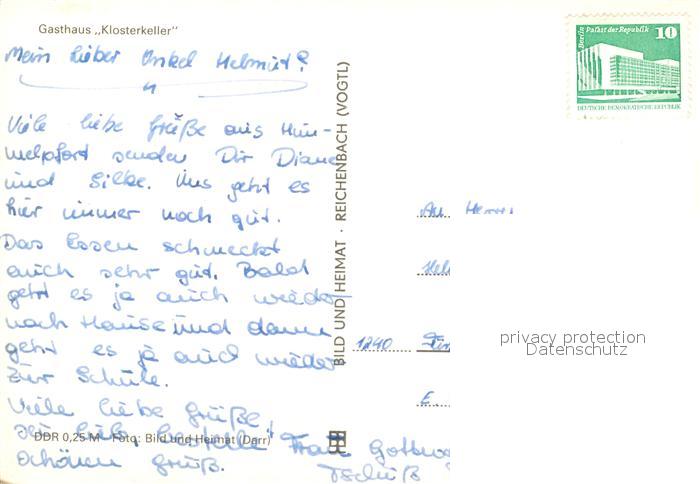 Gasthaus „Klosterkeller“
Mein lieber Onkel Helmut!
Viele liebe Grüße aus Him-
melpfort senden Dir Diane
und Silke. Uns geht es
hier immer noch gut.
Das Essen schmeckt
auch sehr gut. Bald
geht es ja auch wieder
nach Hause und dann
geht es ja auch wieder
zur Schule.
Viele liebe Grüße!
bestelle Frau
schönen Gruß.
Tschüß
DDR 0,25 M · Foto: Bild und Heimat (Darr)
BILD UND HEIMAT · REICHENBACH (VOGTL)
Berlin Palast der Republik 10
DEUTSCHE DEMOKRATISCHE REPUBLIK
An Herrn
1240
privacy protection
Datenschutz